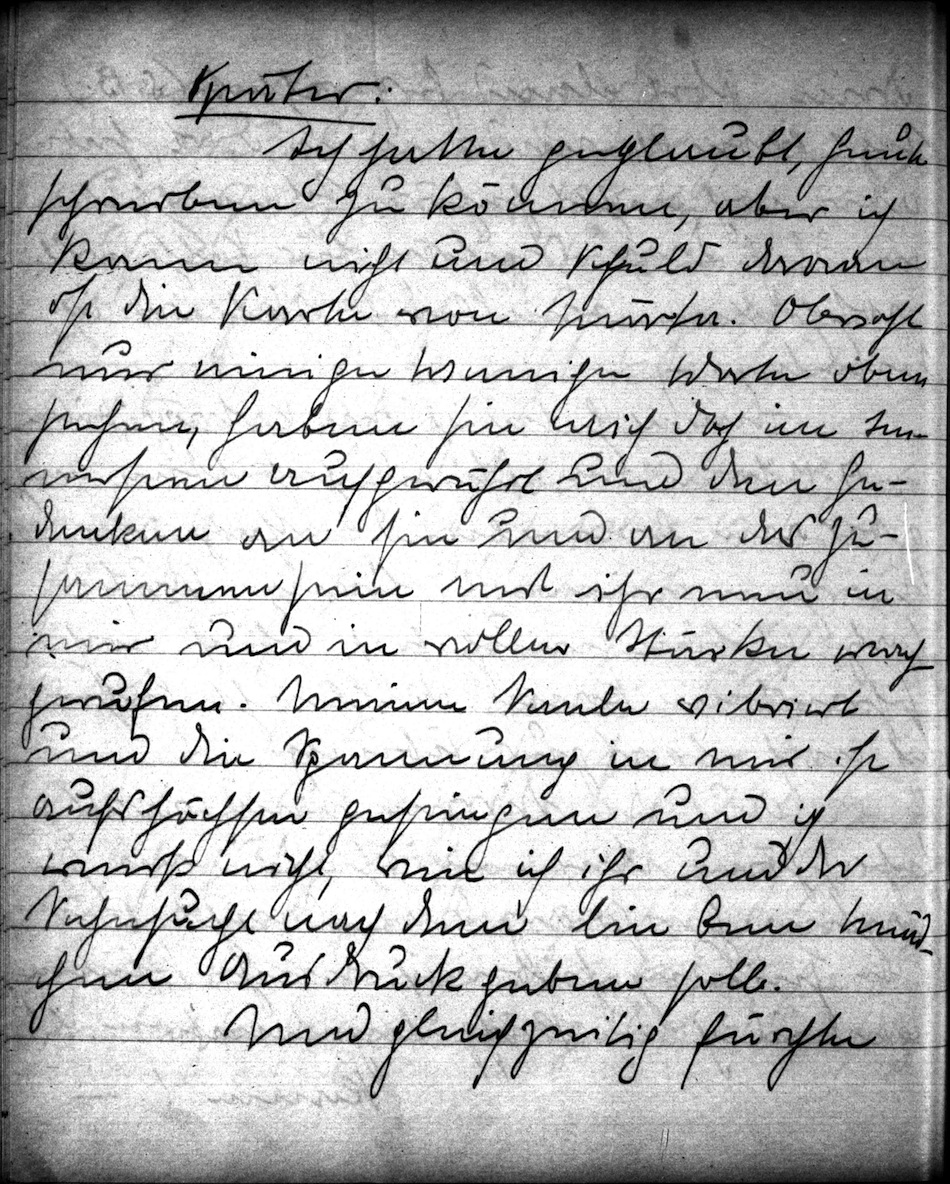 Später:
Ich hatte geglaubt, heute
schreiben zu können, aber ich
kann nicht und Schuld daran
ist die Karte von Märta. Obwohl
nur einige wenige Worte oben
stehen, haben sie mich doch im In-
nersten aufgewühlt und den Ge-
danken an sie und an das Zu-
sammensein mit ihr neu in
mir und in voller Stärke wach
gerufen. Meine Seele vibriert
und die Spannung in mir ist
aufs höchste gestiegen und ich
weiß nicht, wie ich ihr und der
Sehnsucht nach dem lieben Mäd-
chen Ausdruck geben soll.
Und gleichzeitig fürchte